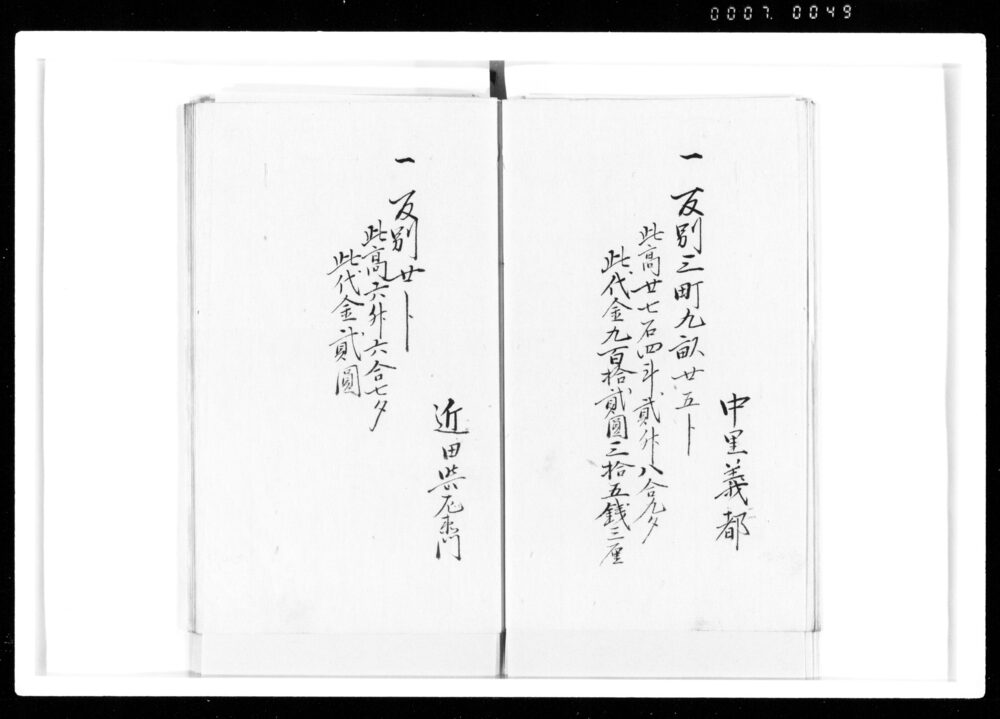 0007. 0049
中里義都
一 反別三町九畝廿五卜
此高廿七石四斗貳升八合九夕
此代金九百拾貳圓三拾五銭三厘
近田
一 反別廿卜
此高六升六合七夕
此代金貳圓